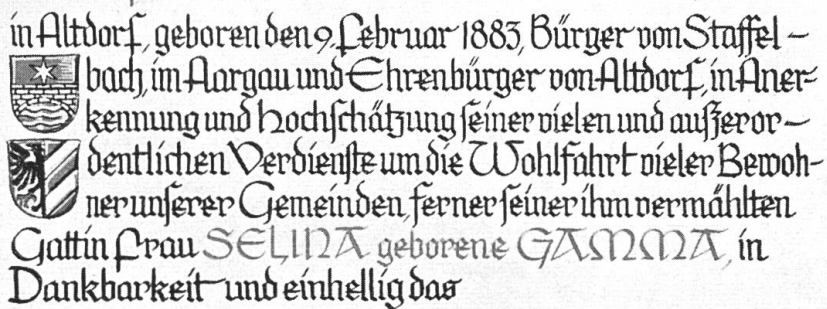 in Altdorf, geboren den 9. Februar 1883, Bürger von Staffel-
bach, im Aargau und Ehrenbürger von Altdorf, in Aner-
kennung und Hochschätzung seiner vielen und außeror-
dentlichen Verdienste um die Wohlfahrt vieler Bewoh-
ner unserer Gemeinden, ferner seiner ihm vermählten
Gattin Frau SELINA geborene GAMMA, in
Dankbarkeit und einhellig das